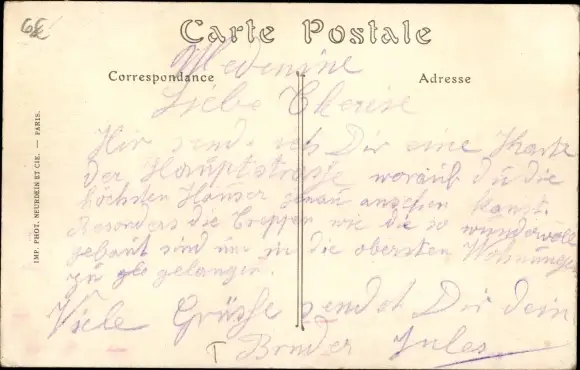 Carte Postale
Medenine
Correspondance
Adresse
Liebe Therese
Hir send ich Dir eine Karte
der Hauptstrasse worauf du die
höchsten Häuser genau ansehen kanst.
Besonders die Treppen wie die so wundervoll
gebaut sind um in die obersten Wohnungen
zu gelangen.
Viele Grüsse sendet Dir dein
Bruder Jules
IMP. PHOT. NEURDEIN ET CIE. — PARIS.